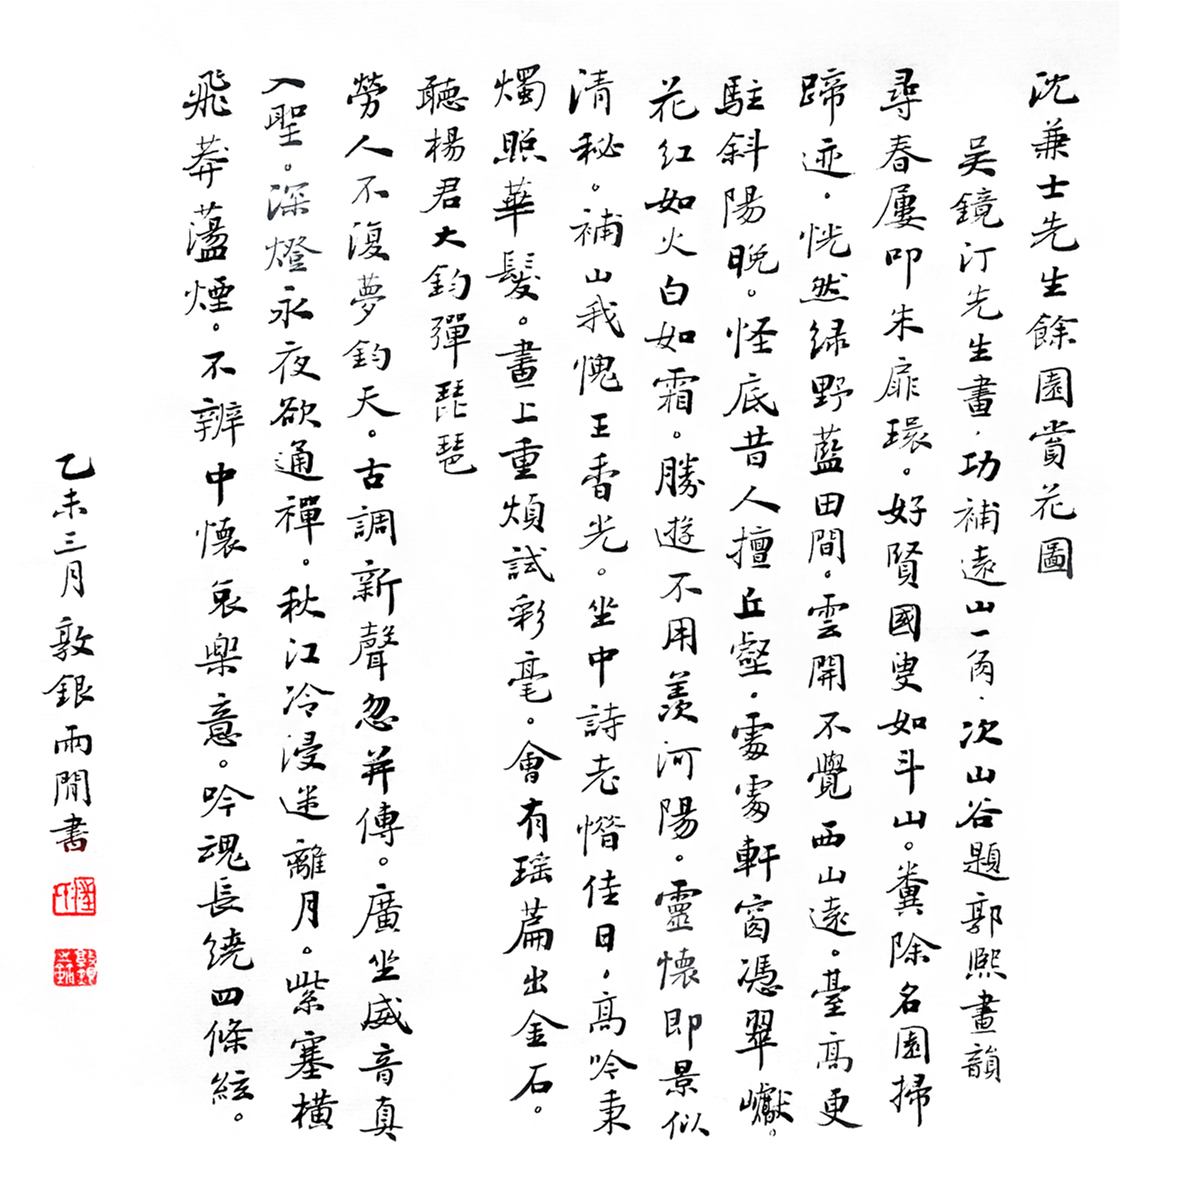 沈兼士先生餘園賞花圖
吴鏡汀先生畫.功補遠山一角.次山谷題郭熙畫韻
尋春屢叩朱扉環。好賢國叟如斗山。糞除名園掃
蹄迹.恍然緑野藍田間。雲開不覺西山遠。臺高更
駐斜陽晚。怪底昔人擅丘壑.處處軒窗憑翠巘。
花紅如火白如霜。勝遊不用羨河陽。靈懷即景似
清秘。補山我愧王香光。坐中詩老惜佳日。高吟秉
燭照華髮。畫上重煩試彩毫。會有瑶篇出金石。
聽楊君大鈞彈琵琶
勞人不復夢鈞天。古調新聲忽并傳。廣坐威音真
入聖。深燈永夜欲通禪。秋江冷浸迷離月。紫塞橫
飛莽蕩煙。不辨中懷哀樂意。吟魂長繞四條絃。
乙未三月敦銀雨閒書